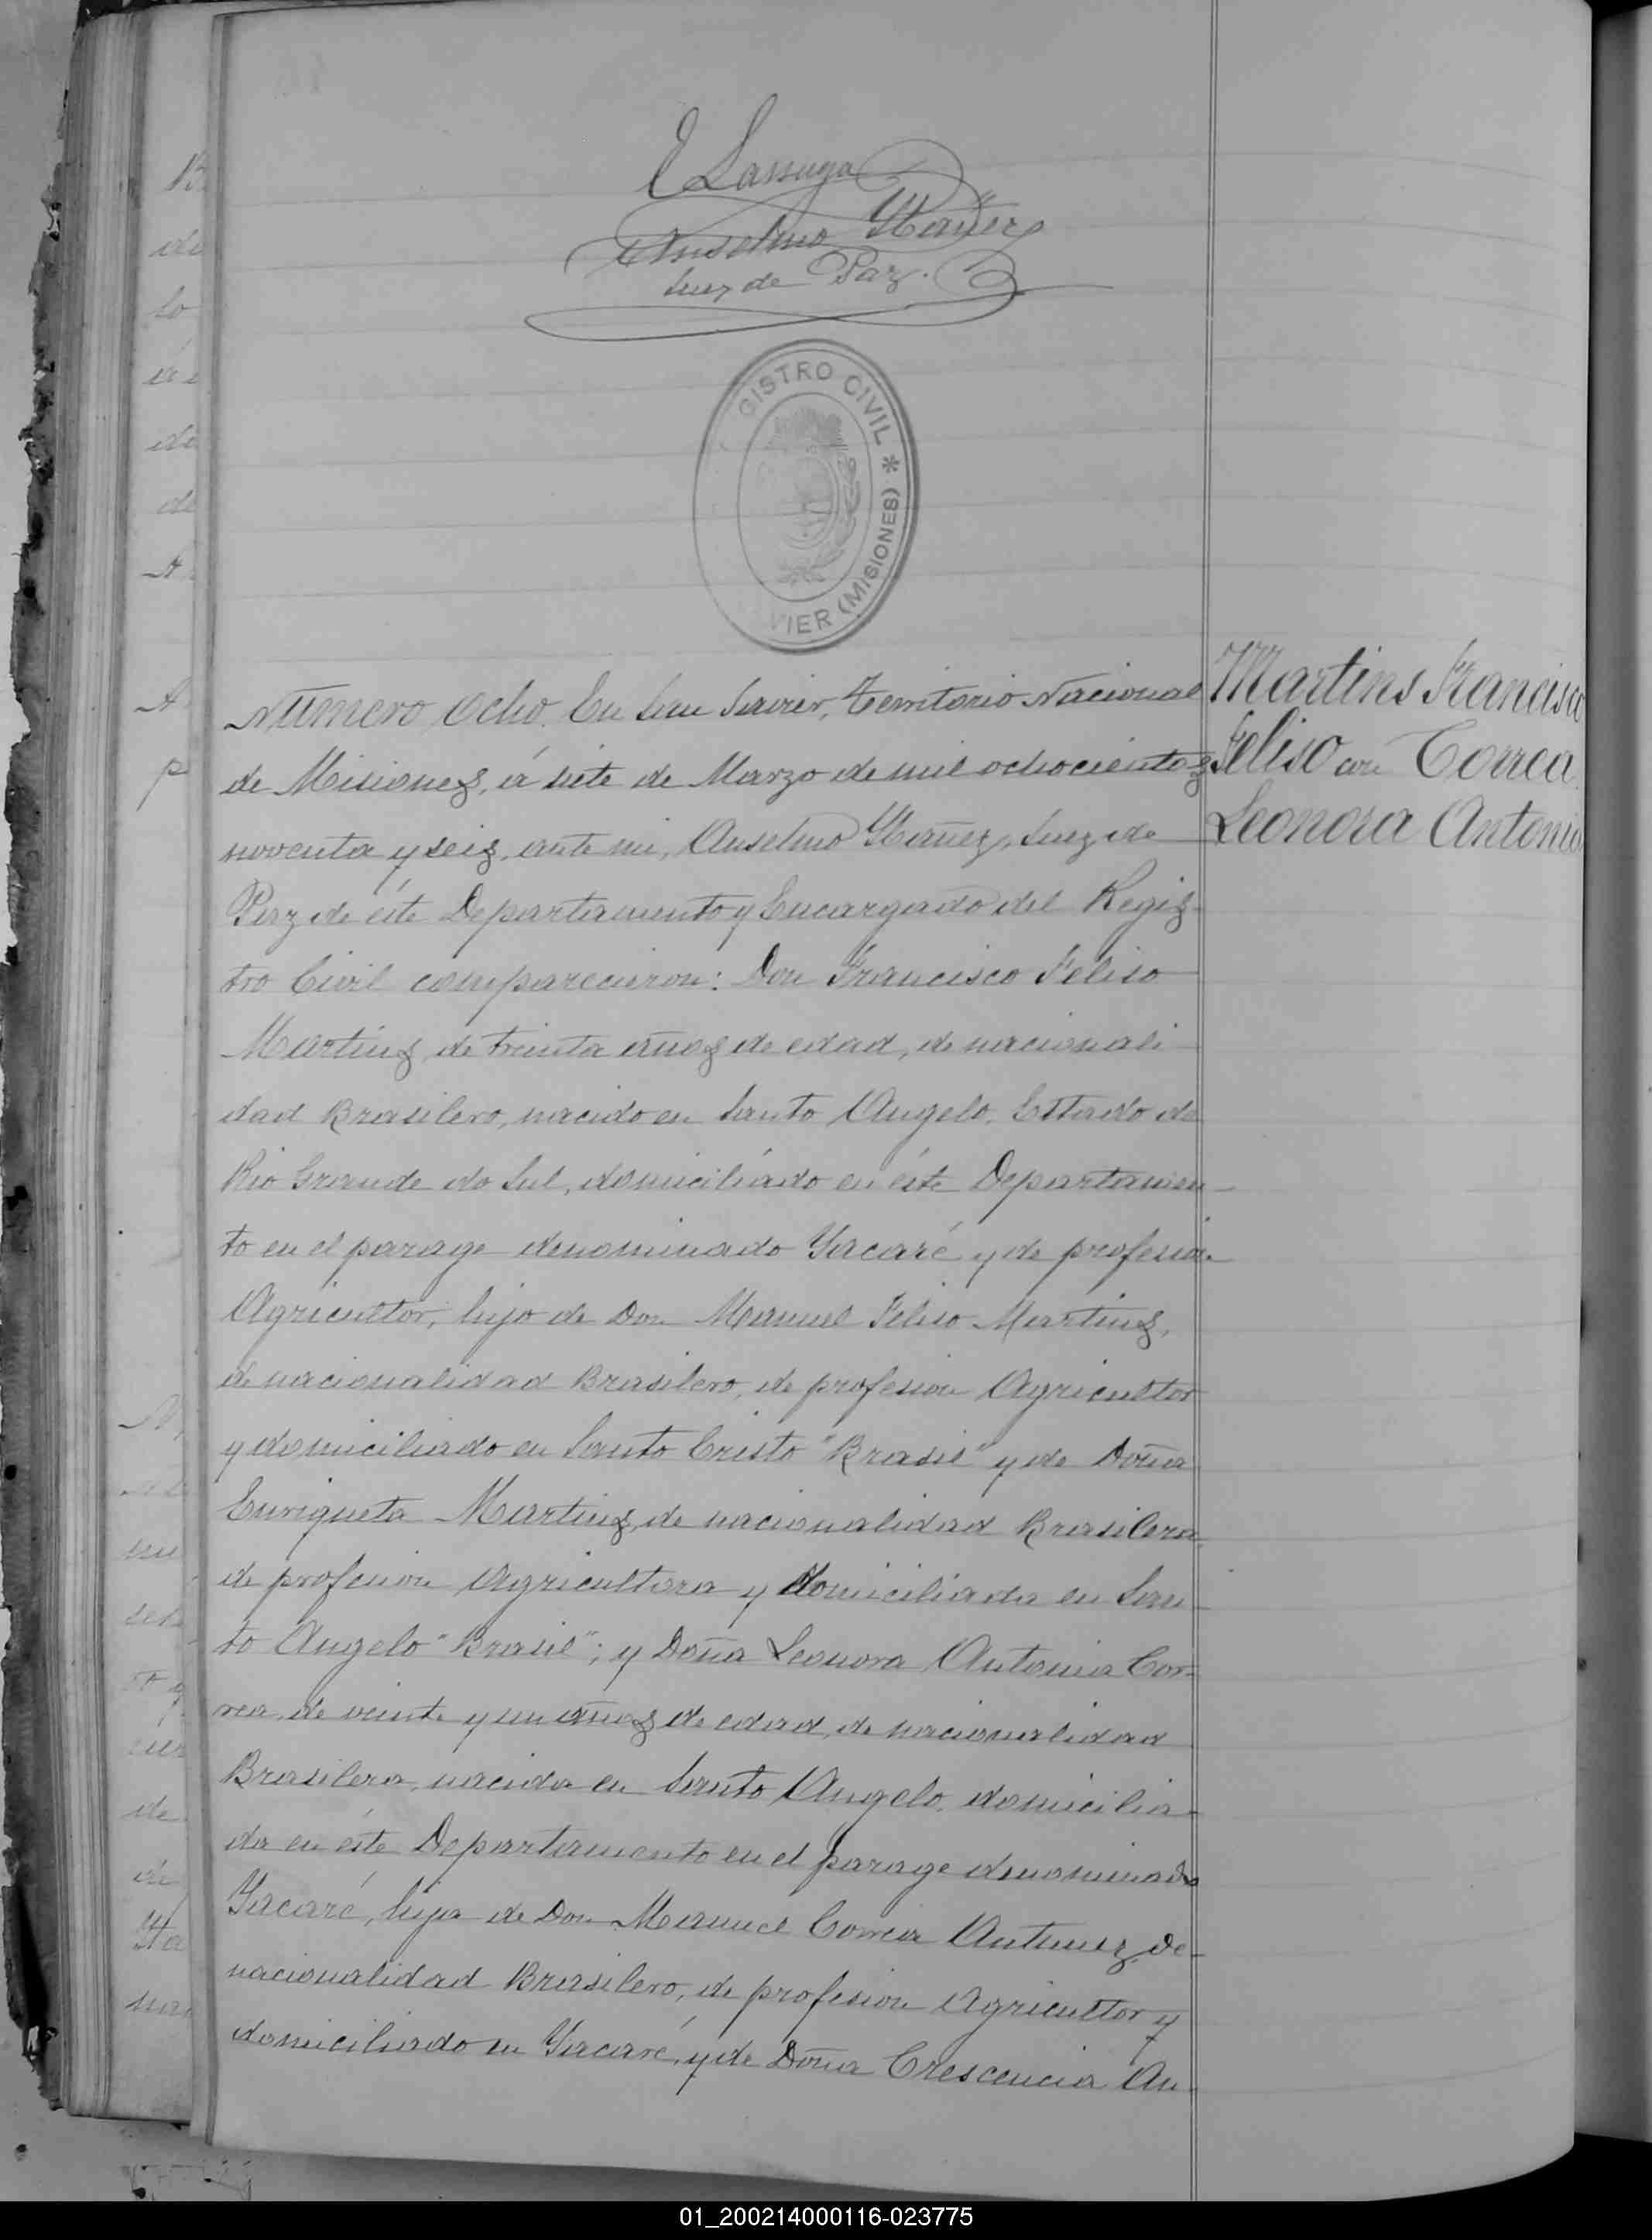 E Lassuga
Anselmo Ybañez
Juez de Paz.
GISTRO CIVIL * VIER (MISIONES)
Martins Francisco
Feliso con Correa
Leonora Antonia
Número Ocho. En San Javier, Territorio Nacional
de Misiones, á siete de Marzo de mil ochocientos
noventa y seis, ante mi, Anselmo Ybañez, Juez de
Paz de éste Departamento y Encargado del Regis-
tro Civil comparecieron: Don Francisco Feliso
Martins, de treinta años de edad, de nacionali
dad Brasilero, nacido en Santo Angelo, Estado de
Rio Grande do Sul, domiciliádo en éste Departamen-
to en el parage denominado Yacaré y de profesion
Agricultor, hijo de Don Manuel Feliso Martins,
de nacionalidad Brasilero, de profesion Agricultor
y domiciliado en Santo Cristo "Brasil" y de Doña
Enriqueta Martins, de nacionalidad Brasilera,
de profesion Agricultora y domiciliada en San
to Angelo "Brasil"; y Doña Leonora Antonia Cor-
rea, de veinte y un años de edad, de nacionalidad
Brasilera, nacida en Santo Angelo, domicilia-
da en éste Departamento en el parage denominado
Yacaré, hija de Don Manuel Correa Antunez, de
nacionalidad Brasilero, de profesion Agricultor y
domiciliado en Yacaré, y de Doña Crescencia An-
01_200214000116-023775